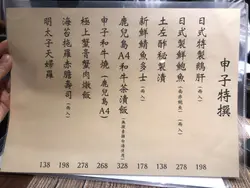 申子特撰
日式特製鵝肝(兩入) 198
日式製鮮鮑魚 278
土左酢秘製藻 138
新鮮鯖魚多士(兩入) 178
鹿兒島A4和牛茶漬飯 328
申子和牛燒(鹿兒島A4) 268
極上蟹膏蟹肉燉飯 278
海苔拖羅赤膽壽司(兩入) 198
明太子天婦羅 138